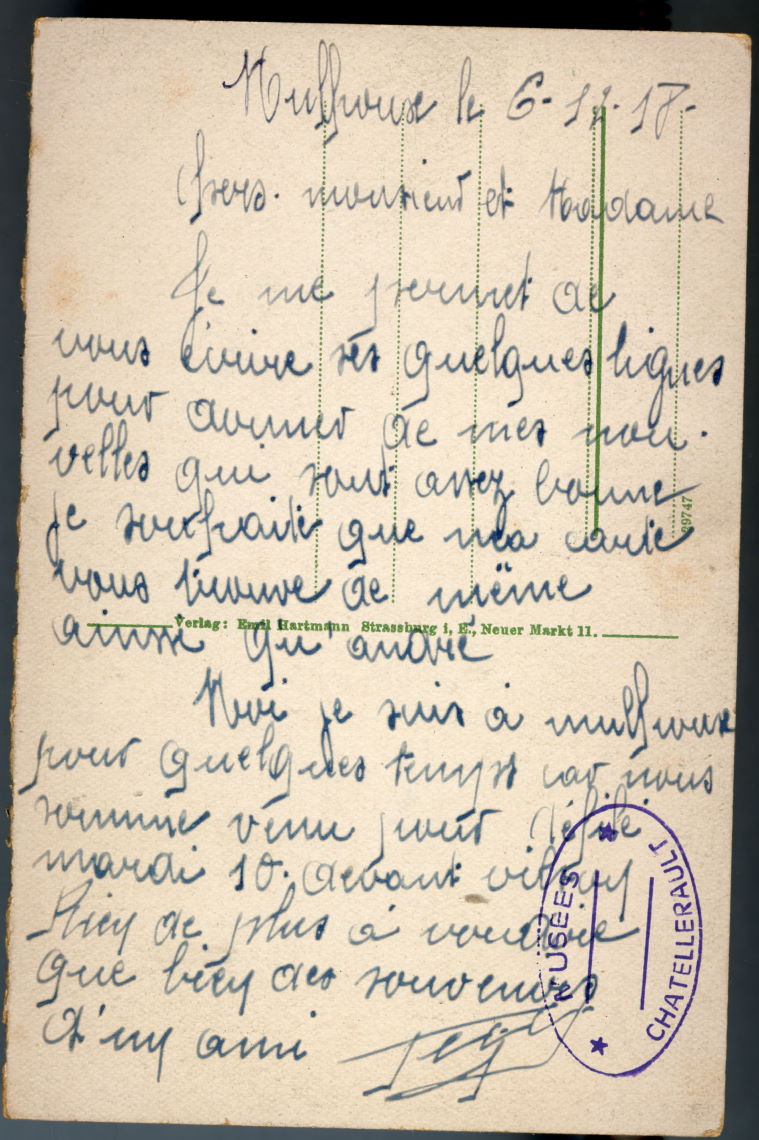 Mulhouse le 6-12-18-
Chers. monsieur et Madame
Je me permet de
vous écrire ses quelques lignes
pour donner de mes nou-
velles qui sont assez bonne
je souhaite que ma carte
vous trouve de même
ainsi qu'andré
Moi je suis à mulhouse
pour quelques temps car nous
somme venu pour défilé
mardi 10. devant
Rien de plus à vous dire
que bien des souvenirs
d'un ami
Verlag: Emil Hartmann Strassburg i. E., Neuer Markt 11.
39747
MUSÉES
CHATELLERAULT